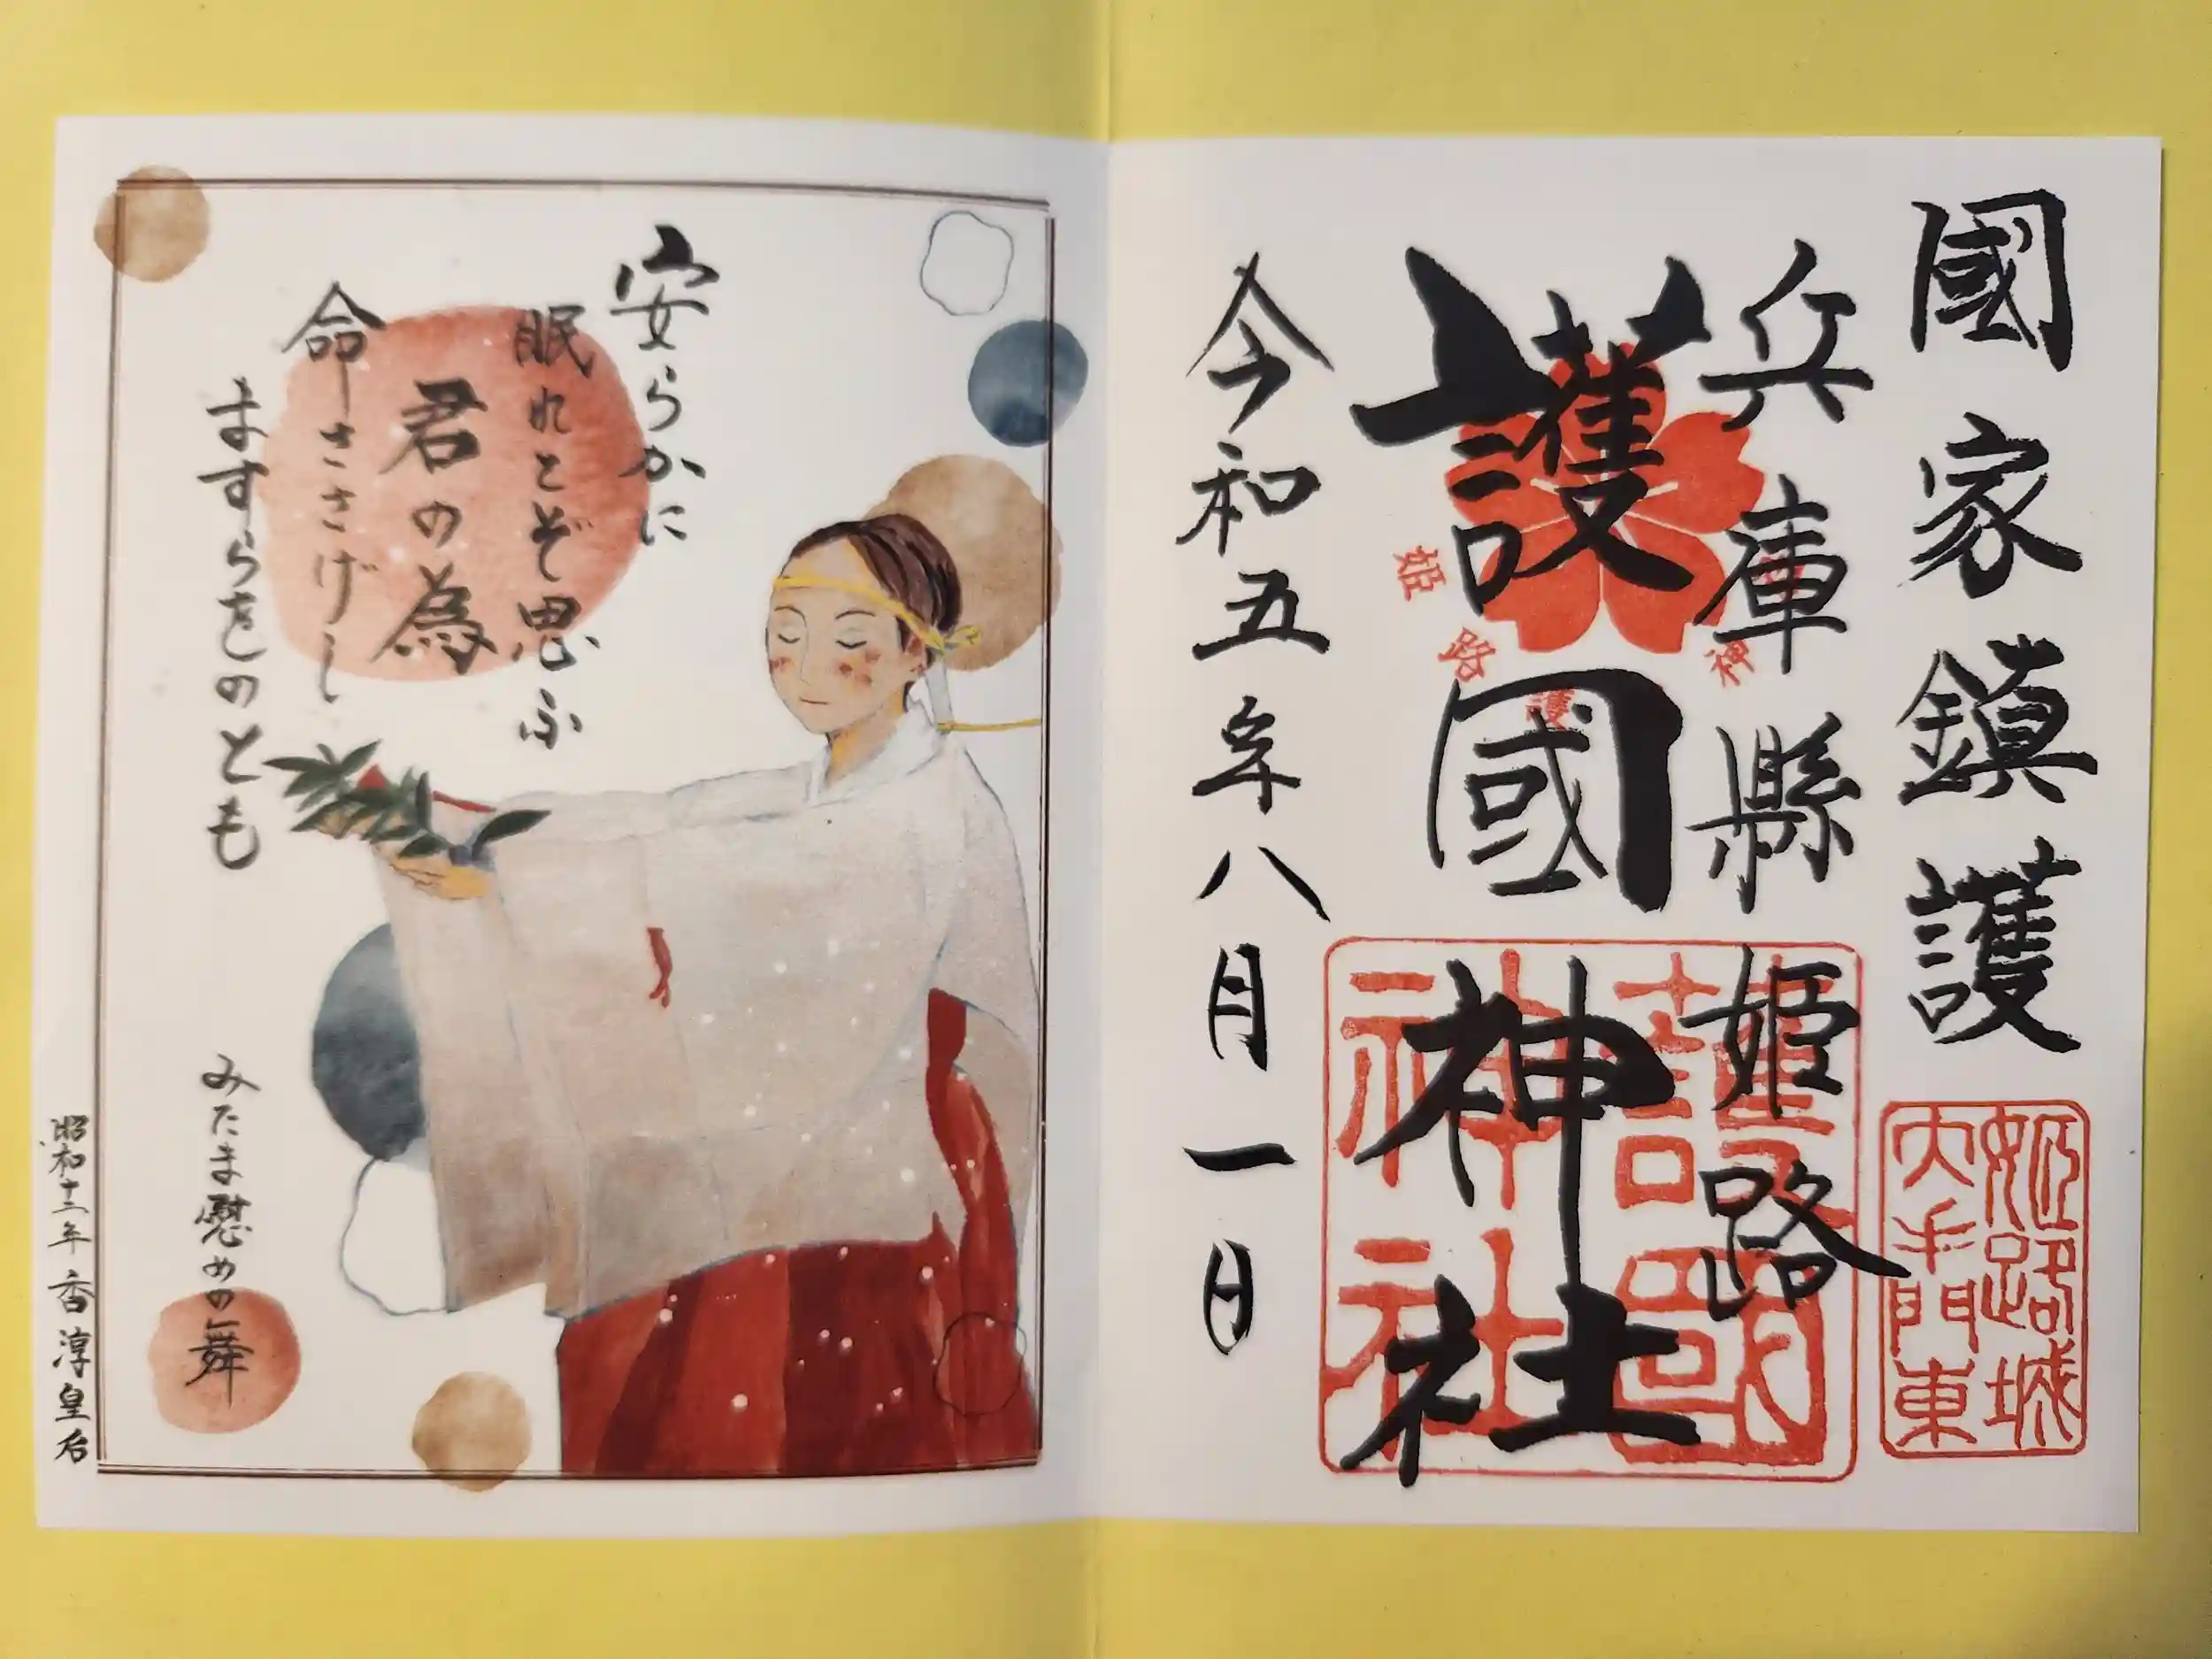 國家鎮護
姫路城
大手門東
兵庫縣姫路
護國神社
護國
神社
姫路護神
令和五年八月一日
安らかに
眠れとぞ思ふ
君の為
命ささげし
ますらをのとも
みたま慰めの舞
昭和十二年 香淳皇后